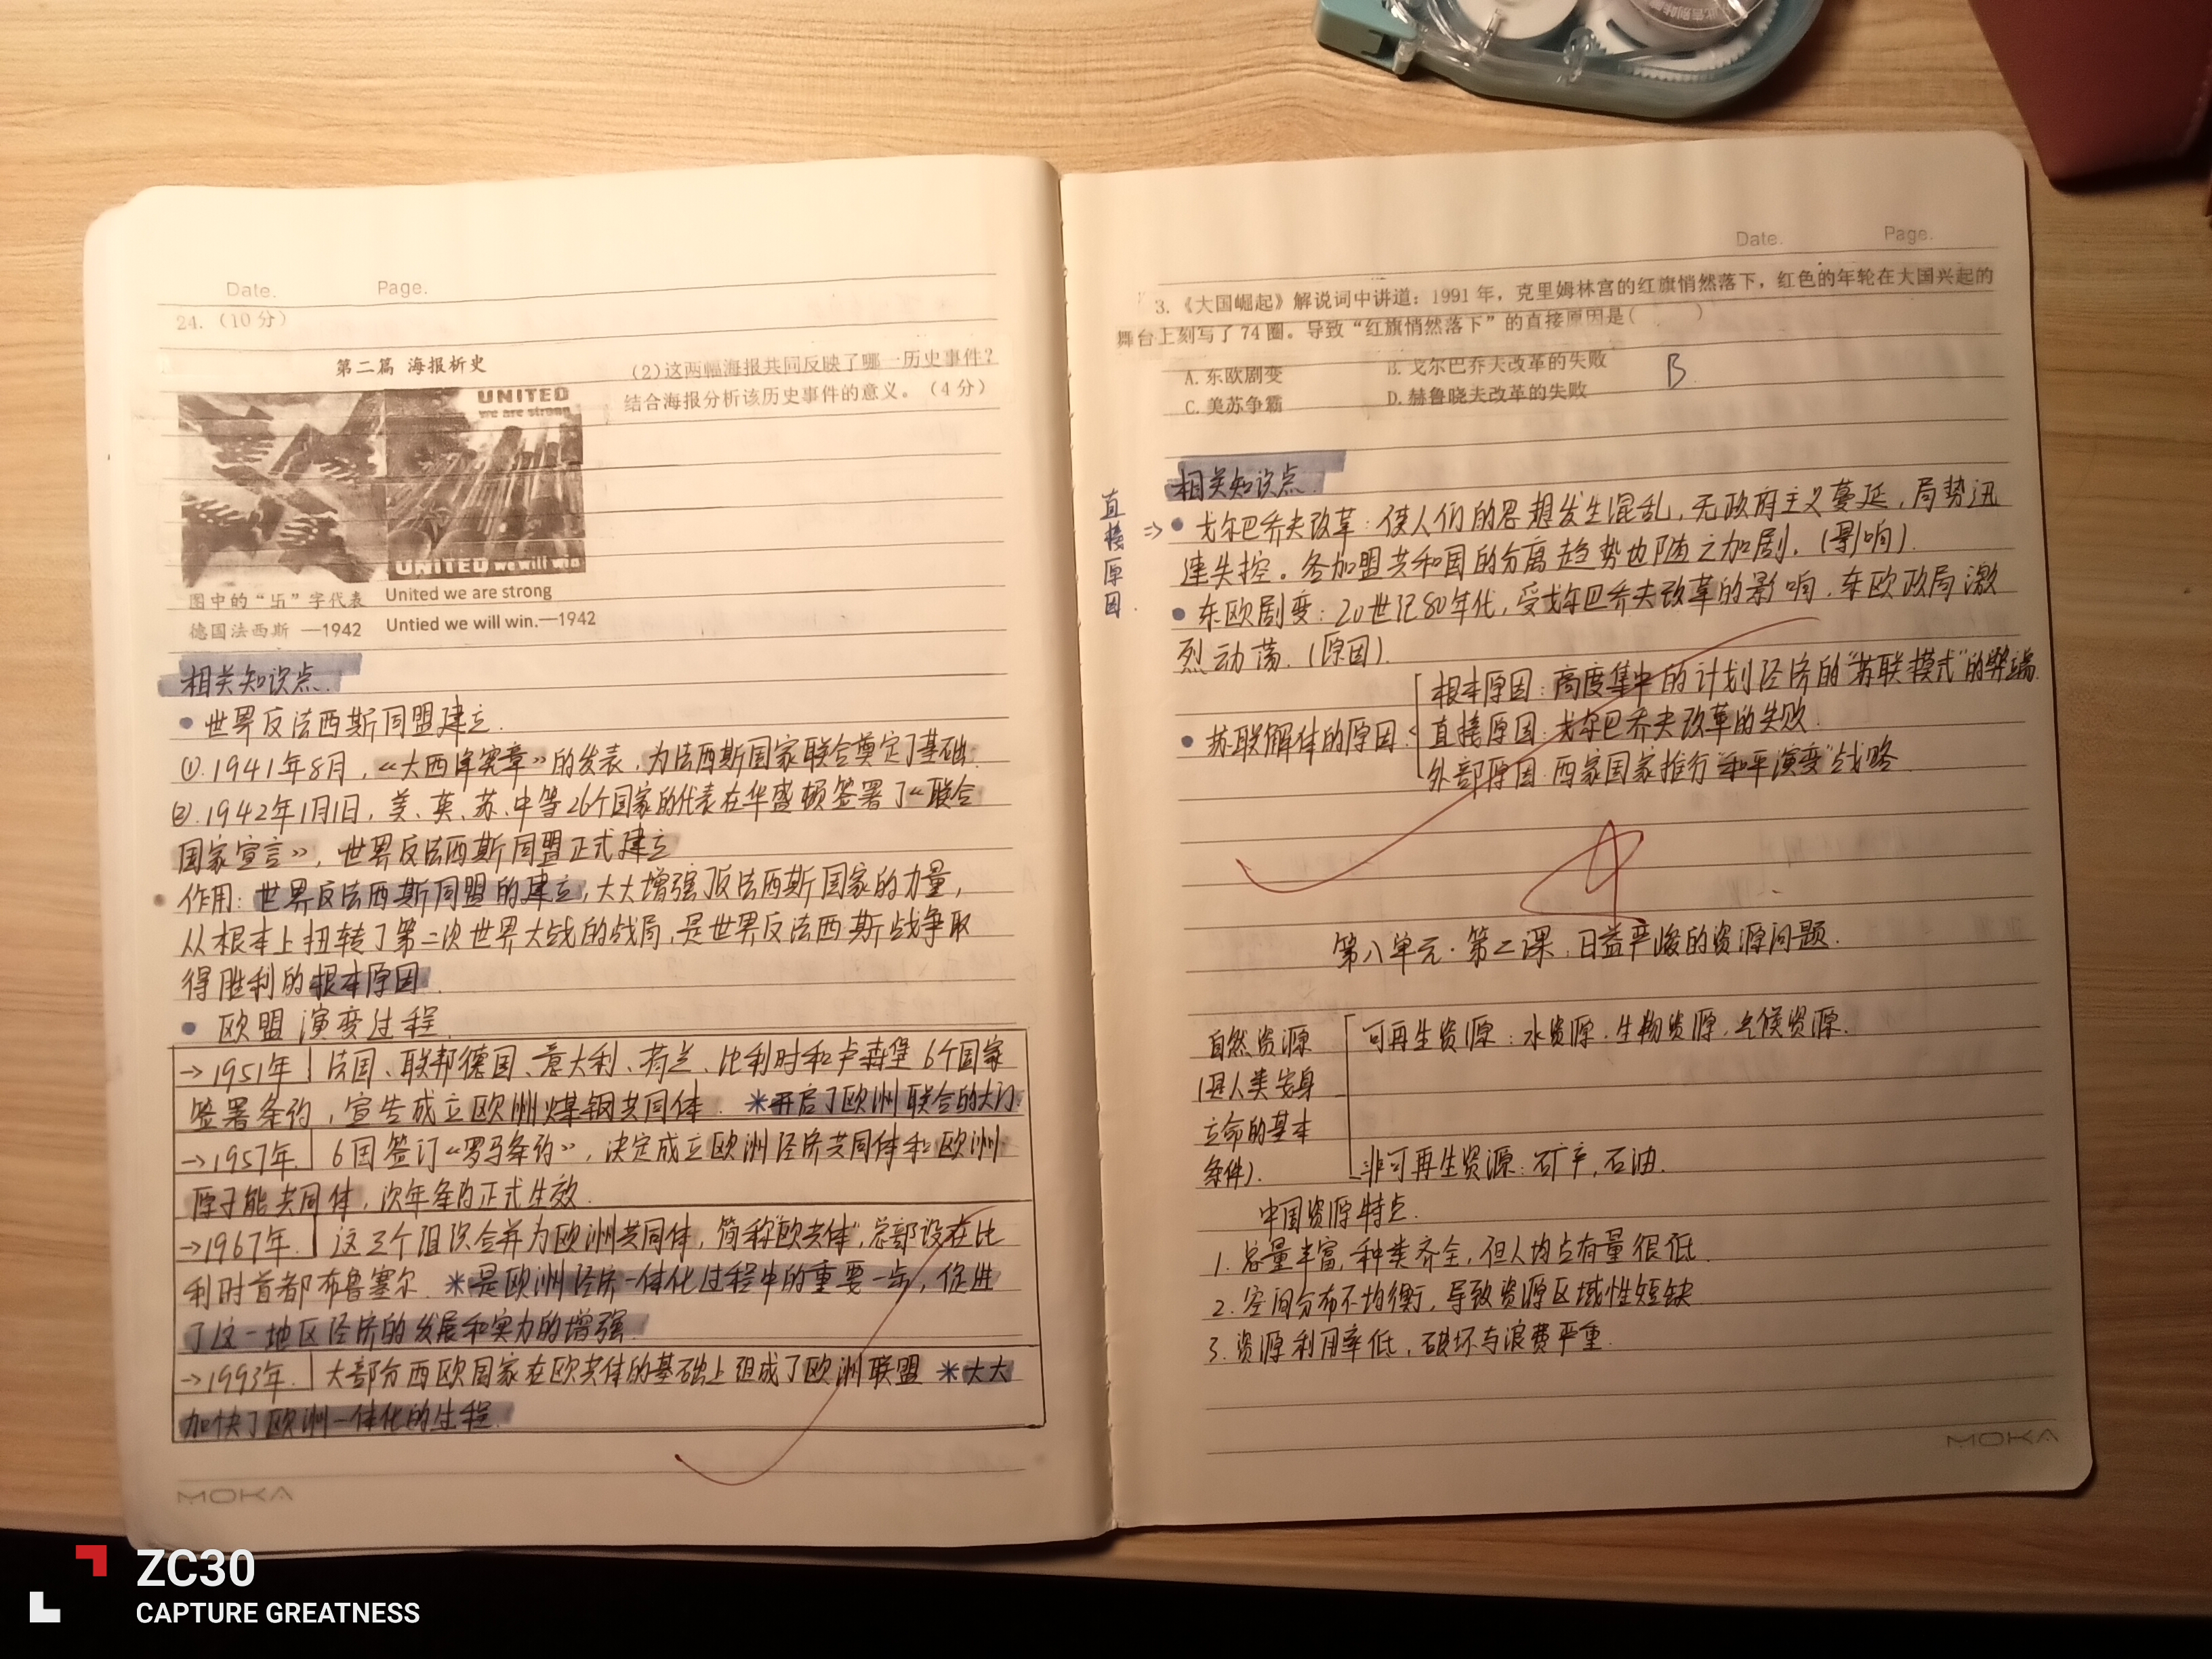 Date. Page.
24.（10分）
第二篇 海报析史
UNITED
we are strong
UNITED we will win
图中的“卐”字代表
德国法西斯 —1942
United we are strong
Untied we will win.—1942
(2)这两幅海报共同反映了哪一历史事件？
结合海报分析该历史事件的意义。（4分）
相关知识点.
• 世界反法西斯同盟建立.
①.1941年8月，《大西洋宪章》的发表，为法西斯国家联合奠定了基础.
②.1942年1月1日，美、英、苏、中等26个国家的代表在华盛顿签署了《联合
国家宣言》，世界反法西斯同盟正式建立
作用：世界反法西斯同盟的建立，大大增强了反法西斯国家的力量，
从根本上扭转了第二次世界大战的战局，是世界反法西斯战争取
得胜利的根本原因.
• 欧盟演变过程.
→1951年 法国、联邦德国、意大利、荷兰、比利时和卢森堡6个国家
签署条约，宣告成立欧洲煤钢共同体. *开启了欧洲联合的大门.
→1957年. 6国签订《罗马条约》，决定成立欧洲经济共同体和欧洲
原子能共同体，次年条约正式生效.
→1967年. 这三个组织合并为欧洲共同体，简称“欧共体”，总部设在比
利时首都布鲁塞尔. *是欧洲经济一体化过程中的重要一步，促进
了这一地区经济的发展和实力的增强.
→1993年. 大部分西欧国家在欧共体的基础上组成了欧洲联盟 *大大
加快了欧洲一体化的进程.
MOKA
Date. Page.
3.《大国崛起》解说词中讲道：1991年，克里姆林宫的红旗悄然落下，红色的年轮在大国兴起的
舞台上刻写了74圈。导致“红旗悄然落下”的直接原因是（ ）
A.东欧剧变 B.戈尔巴乔夫改革的失败
B.
C.美苏争霸 D.赫鲁晓夫改革的失败
相关知识点.
直接原因.
⇒• 戈尔巴乔夫改革：使人们的思想发生混乱，无政府主义蔓延，局势迅
速失控。各加盟共和国的分离趋势也随之加剧.（影响）.
• 东欧剧变：20世纪80年代，受戈尔巴乔夫改革的影响，东欧政局激
烈动荡.（原因）.
• 苏联解体的原因：
根本原因：高度集中的计划经济的“苏联模式”的弊端.
直接原因：戈尔巴乔夫改革的失败.
外部原因：西家国家推行“和平演变”战略
第八单元·第二课：日益严峻的资源问题.
自然资源
（是人类安身
立命的基本
条件）.
可再生资源：水资源.生物资源.气候资源.
非可再生资源：矿产，石油.
中国资源特点.
1.总量丰富，种类齐全，但人均占有量很低.
2.空间分布不均衡，导致资源区域性短缺
3.资源利用率低，破坏与浪费严重.
MOKA
ZC30
CAPTURE GREATNESS